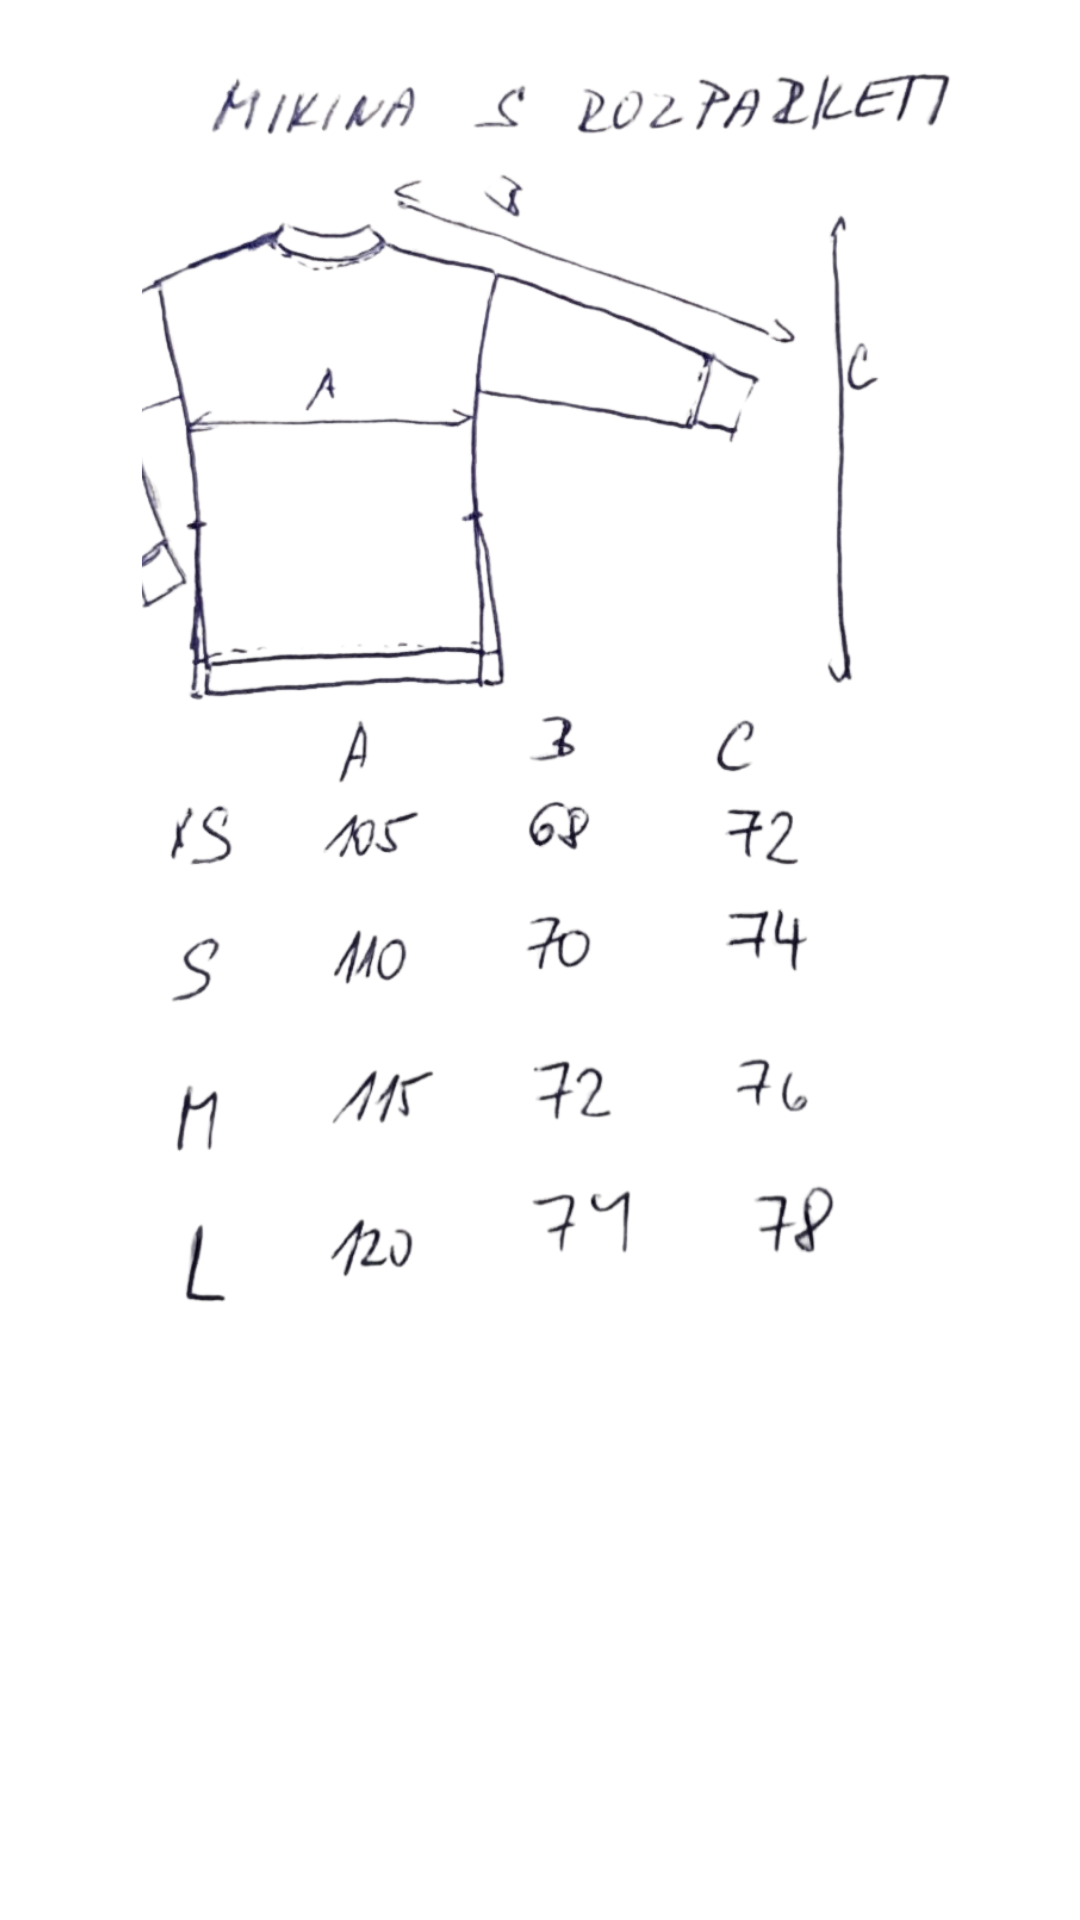 MIKINA S ROZPARKETI
B
C
A
A B C
XS 105 68 72
S 110 70 74
M 115 72 76
L 120 74 78